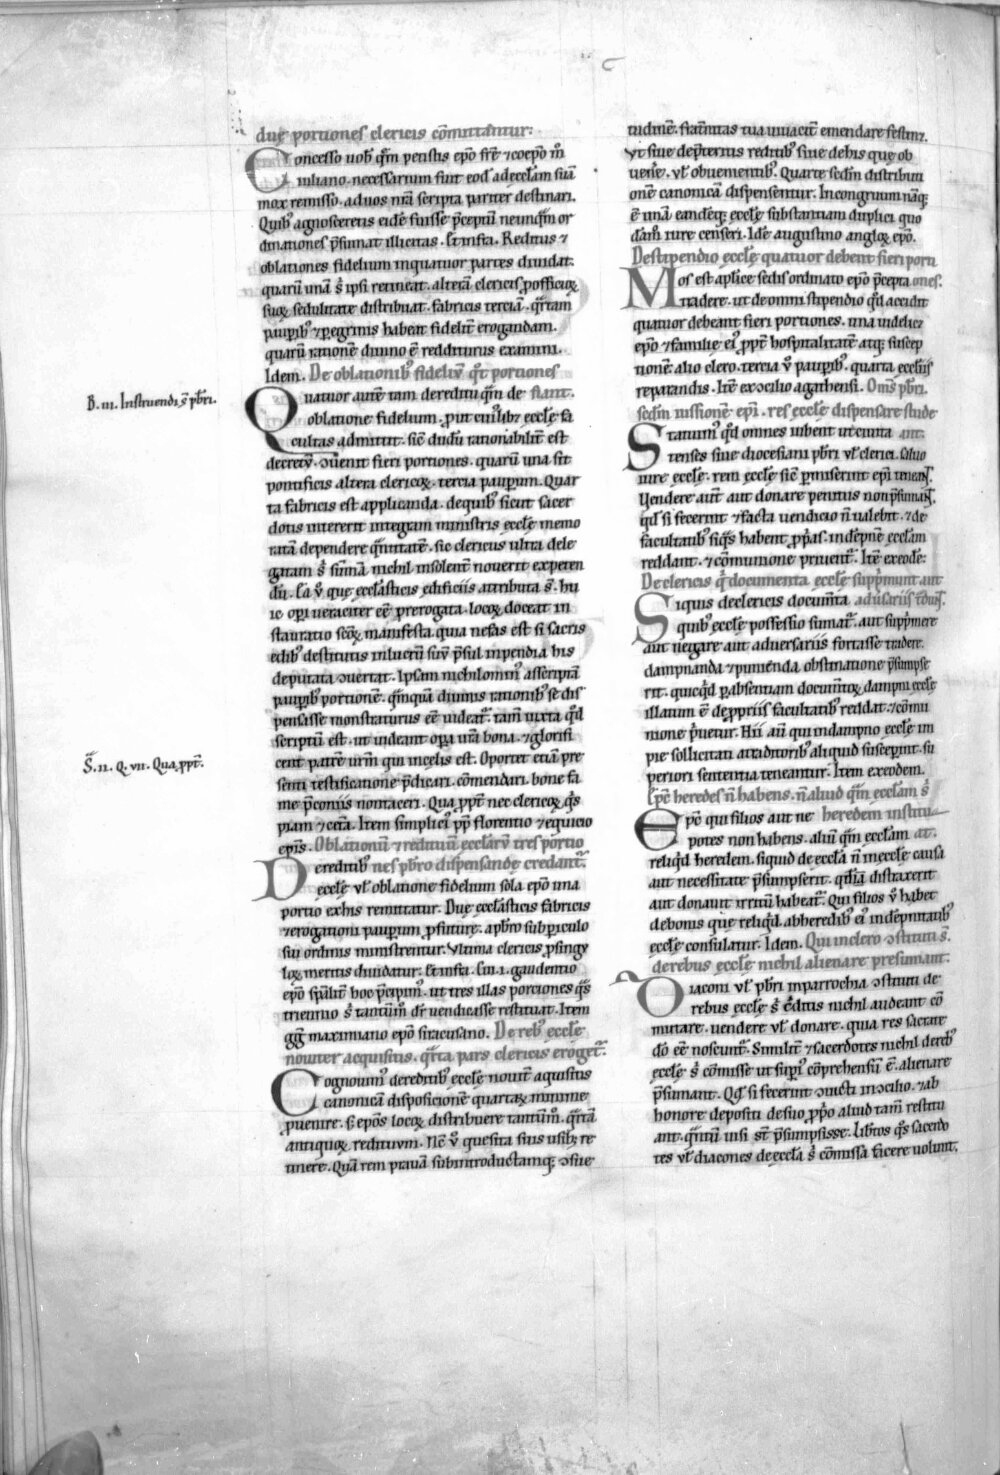 due portiones clericis cōmittantur:
Concesso uob̄ q̄m pensitis epō frē ⁊coepō n̄r̄
iuliano. necessarium fuit eod̄ adecclam suā
mox remisso. aduos nr̄a scripta pariter destinari.
Quib᷒ agnosceretis eidē fuisse p̄ceptū neunq̄m or
dinationes p̄sumat illicitas. Et infra. Reditus ⁊
oblationes fidelium inquatuor partes diuidat.
quarū unā s᷒ ipsi retineat. alterā clericis ꝓofficioꝝ
suoꝝ sedulitate distribuat. fabricis terciā. q̄rtam
pauꝑib᷒ ⁊ꝑegrinis habeat fidelit̄ erogandam.
quarū rationē diuino ē redditurus examini.
Idem. De oblationib᷒ fidelivm q̄t portiones
Quatuor autē tam dereditu q̄m de fiant.
oblatione fidelium. ꝓut cuilib; eccle fa
cultas admittit. sic̄ dudū rationabilit̄ est
decretū. ↄuenit fieri portiones. quarū una sit
pontificis altera clericoꝝ. tercia pauꝑum. Quar
ta fabricis est applicanda. dequib᷒ sicut sacer
dotis intererit integram ministris eccle memo
ratā dependere q̄ntitatē. sic clericus ultra dele
gatam s᷒ sum̄ā nichil insolent̄ nouerit expeten
dū. Ea ū que ecclasticis edificiis attributa s̄. hu
ic oꝑi ueraciter eē prerogata. locoꝝ doceat in
stauratio sc̄oꝝ manifesta. quia nefas est si sacris
edib᷒ destitutis inlucrū suū p̄sul inpendia his
deputata ↄuertat. Ipsam nichilomin᷒ asscriptā
pauꝑib᷒ portionē. q̄nquā diuinis rationib᷒ se dis
pensasse monstraturus eē uideat̄. tam̄ iuxta q̄d
scriptū est. ut uideant oꝑa ur̄a bona. ⁊glorifi
cent patrē ur̄m qui incelis est. Oportet etiā pre
senti testificatione p̄dicari. cōmendari. bone fa
me p̄coniis nontaceri. Qua ꝓpt̄ nec clericoꝝ q̄s
piam ⁊cetā. Item simplici᷒ pp̄ florentio ⁊equicio
ep̄is. Oblationū ⁊redituū ecclarū tres portio
De reditib᷒ nes pbro dispensande credant̄.
eccle vl̄ oblatione fidelium sola epō una
portio exhis remittatur. Due ecclasticis fabricis
⁊erogationi pauꝑum ꝓfuture. apbr̄o subꝑiculo
sui ordinis ministrentur. Vltima clericis ꝓsingu
loꝝ meritis diuidatur. Et infra. Cui. 1. gaudentio
epō sp̄alit̄ hoc p̄cepim᷒. ut tres illas portiones q̄s
triennio s᷒ tantūm᷒ dr̄ uendicasse restituat. Item
gḡ maximiano epō siracusano. De reb᷒ eccle
nouiter acquisitis. q̄rta pars clericis eroget̄.
Cognouim᷒ dereditib᷒ eccle nouit̄ aquisitis
canonicā disposicionē quartaꝝ minime
ꝓuenire. s᷒ epōs locoꝝ distribuere tantūm᷒. q̄rtā
antiquoꝝ redituvm. Nc̄ ū quesita suis usib; re
tinere. Quā rem prauā subintroductamq; ↄsue
tudinē. frat̄nitas tua uiuacit̄ emendare festinet.
Vt siue depteritis reditib᷒ siue dehis que ob
uen̄e. vl̄ obuenientib᷒. Quarte sedm̄ distributi
onē canonicā dispensentur. Incongruum nāq;
ē unā eandēq; eccle substantiam duplici quo
dam᷒ iure censeri. Idē augustino angloꝝ epō.
De stipendio eccle quatuor debent fieri porti
Mos est aplice sedis ordinato epō p̄cepta ones.
tradere. ut de omni stipendio q̄d accidit
quatuor debeant fieri portiones. una uidelicet
epō ⁊familie ei᷒ ꝓpt̄ hospitalitatē atq; suscep
tionē. alio clero. tercia ū pauꝑib᷒. quarta ecclīis
reparandis. Itē excōcilio agathensi. Om̄s pbr̄i.
sedm̄ iussionē epī. res eccle dispensare stude
Statuim᷒ q̄d omnes iubent ut ciuita ant.
tenses siue diocesiani pbr̄i vl̄ clerici. saluo
iure eccle. rem eccle sic̄ ꝑmiserint epī teneant̄.
Vendere aut̄ aut donare penitus non p̄sumant̄.
q̄d si fecerint ⁊facta uendicio n̄ ualebit. ⁊de
facultatib᷒ siq̄s habent ꝓpās. indēpnē ecclam
reddant. ⁊cōmunione priuent̄. Itē exeodē:
De clericis q̄ documenta eccle supp̄munt aut
Siquis declericis docum̄ta aduersariis t̄dunt̄.
quib᷒ eccle possessio firmat̄. aut supp̄mere
aut negare aut aduersariis fortasse tradere.
dampnanda ⁊punienda obstinatione p̄sumpse
rit. quicq̄d ꝑabsentiam docum̄toꝝ dampni eccle
illatum ē deꝓpriis facultatib᷒ reddat. ⁊cōmu
nione p̄uetur. Hii aū qui indampno eccle im
pie sollicitati atraditorib᷒ aliquid susceꝑint. su
periori sententia teneantur. Item exeodem.
Ep̄c heredes n̄ habens. n̄ aliud q̄m ecclam s᷒
Ep̄c qui filios aut ne heredem institu
potes non habens. aliū q̄m ecclam at.
reliq̄d heredem. siquid de eccla n̄ ineccle causa
aut necessitate p̄sumpserit. qd̄iā distraxerit
aut donauit irritū habeat̄. Qui filios ū habet
debonis que reliq̄d. abheredib᷒ ei᷒ indēpnitatib᷒
eccle consulatur. Idem. Qui inclero ↄstituti s̄.
derebus eccle nichil alienare presumant.
Diaconi vl̄ pbr̄i inparrochia ↄstituti de
rebus eccle s᷒ c᷒ditis nichil audeant cō
mutare. uendere vl̄ donare. quia res sacrate
dō eē noscunt̄. Similit̄ ⁊sacerdotes nichil dereb᷒
eccle s᷒ cōmisse ut suꝑi᷒ cōprehensū ē. alienare
p̄sumant. Qd̄ si fecerint ↄuicti incōcilio. ⁊ab
honore depositi desuo ꝓp̄o aliud tam̄ restitu
ant. q̄ntū uisi st̄ p̄sumpsisse. Libros q̄s sacerdo
tes vl̄ diacones de eccla s᷒ cōmissa facere uolunt.
B. iii. Instruendi s̄ pbr̄i.
S̄. ii. Q. vii. Qua ꝓpt̄.